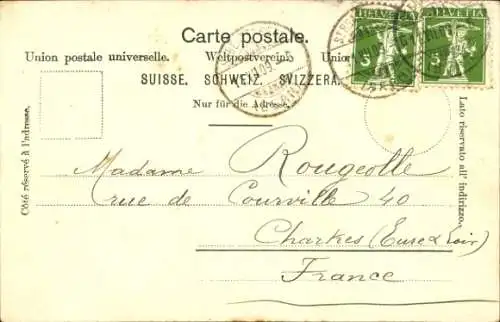 HELVETIA HELVETIA
5 5
Carte postale.
Union postale universelle. Weltpostverein. Union
SUISSE. SCHWEIZ. SVIZZERA.
Nur für die Adresse.
Côté réservé à l'adresse.
Lato riservato all' indirizzo.
Madame Rougeolle
rue de Courville 40
Chartres (Eure & Loir)
France